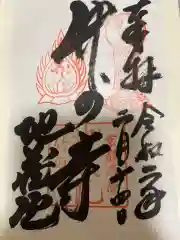 奉拝
令和二年
二月十一日
竹の寺
地蔵院